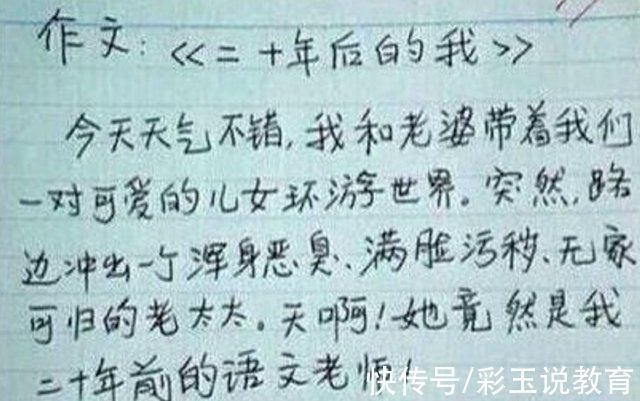 作文:《二十年后的我》
今天天气不错,我和老婆带着我们
一对可爱的儿女环游世界。突然,路
边冲出一个浑身恶臭、满脸污秽、无家
可归的老太太。天啊!她竟然是我
二十年前的语文老师!
快传号/彩玉说教育